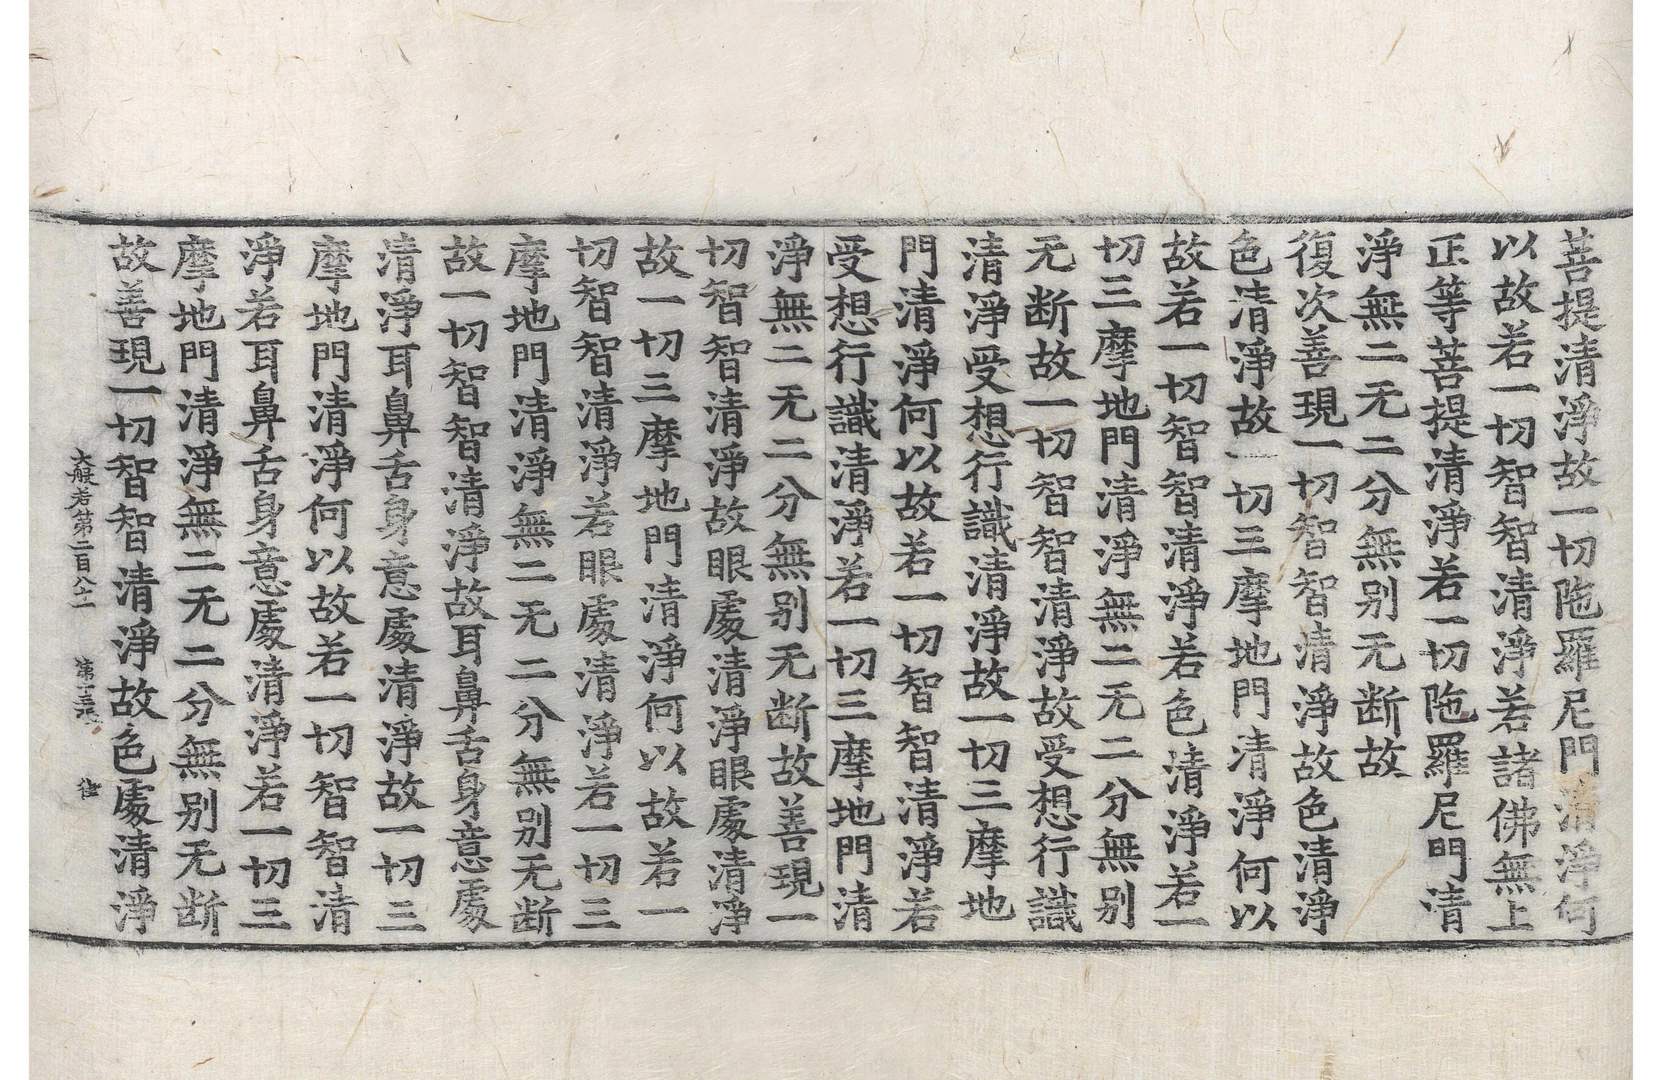 菩提清淨故一切陁羅尼門清淨何
以故若一切智智清淨若諸佛無上
正等菩提清淨若一切陁羅尼門清
淨無二无二分無别无断故
復次善現一切智智清淨故色清淨
色清淨故一切三摩地門清淨何以
故若一切智智清淨若色清淨若一
切三摩地門清淨無二无二分無别
无断故一切智智清淨故受想行識
清淨受想行識清淨故一切三摩地
門清淨何以故若一切智智清淨若
受想行識清淨若一切三摩地門清
淨無二无二分無别无断故善現一
切智智清淨故眼處清淨眼處清淨
故一切三摩地門清淨何以故若一
切智智清淨若眼處清淨若一切三
摩地門清淨無二无二分無别无断
故一切智智清淨故耳鼻舌身意處
清淨耳鼻舌身意處清淨故一切三
摩地門清淨何以故若一切智智清
淨若耳鼻舌身意處清淨若一切三
摩地門清淨無二无二分無别无断
故善現一切智智清淨故色處清淨
大般若第二百八十